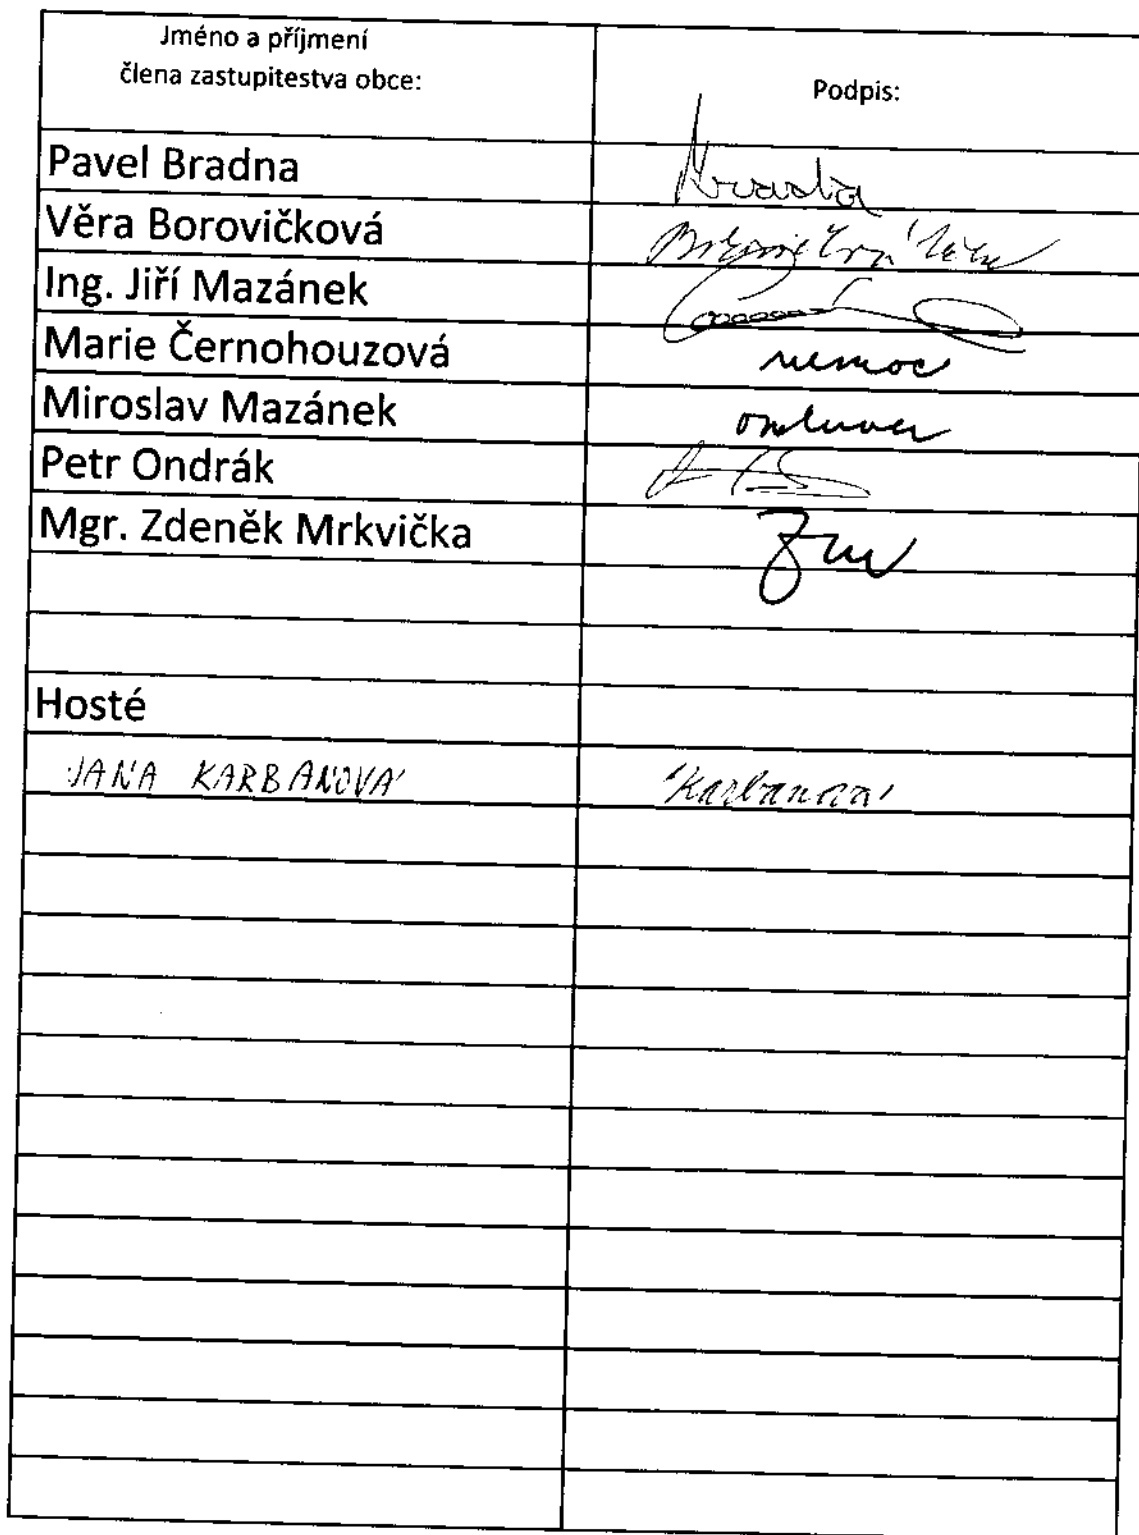 Jméno a příjmení
člena zastupitestva obce:
Podpis:
Pavel Bradna
Věra Borovičková
Ing. Jiří Mazánek
Marie Černohouzová nemoc
Miroslav Mazánek
Petr Ondrák
Mgr. Zdeněk Mrkvička
Hosté
JANA KARBANOVÁ Karbanová